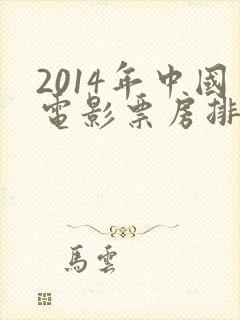 2014年中國
電影票房排
馬雲